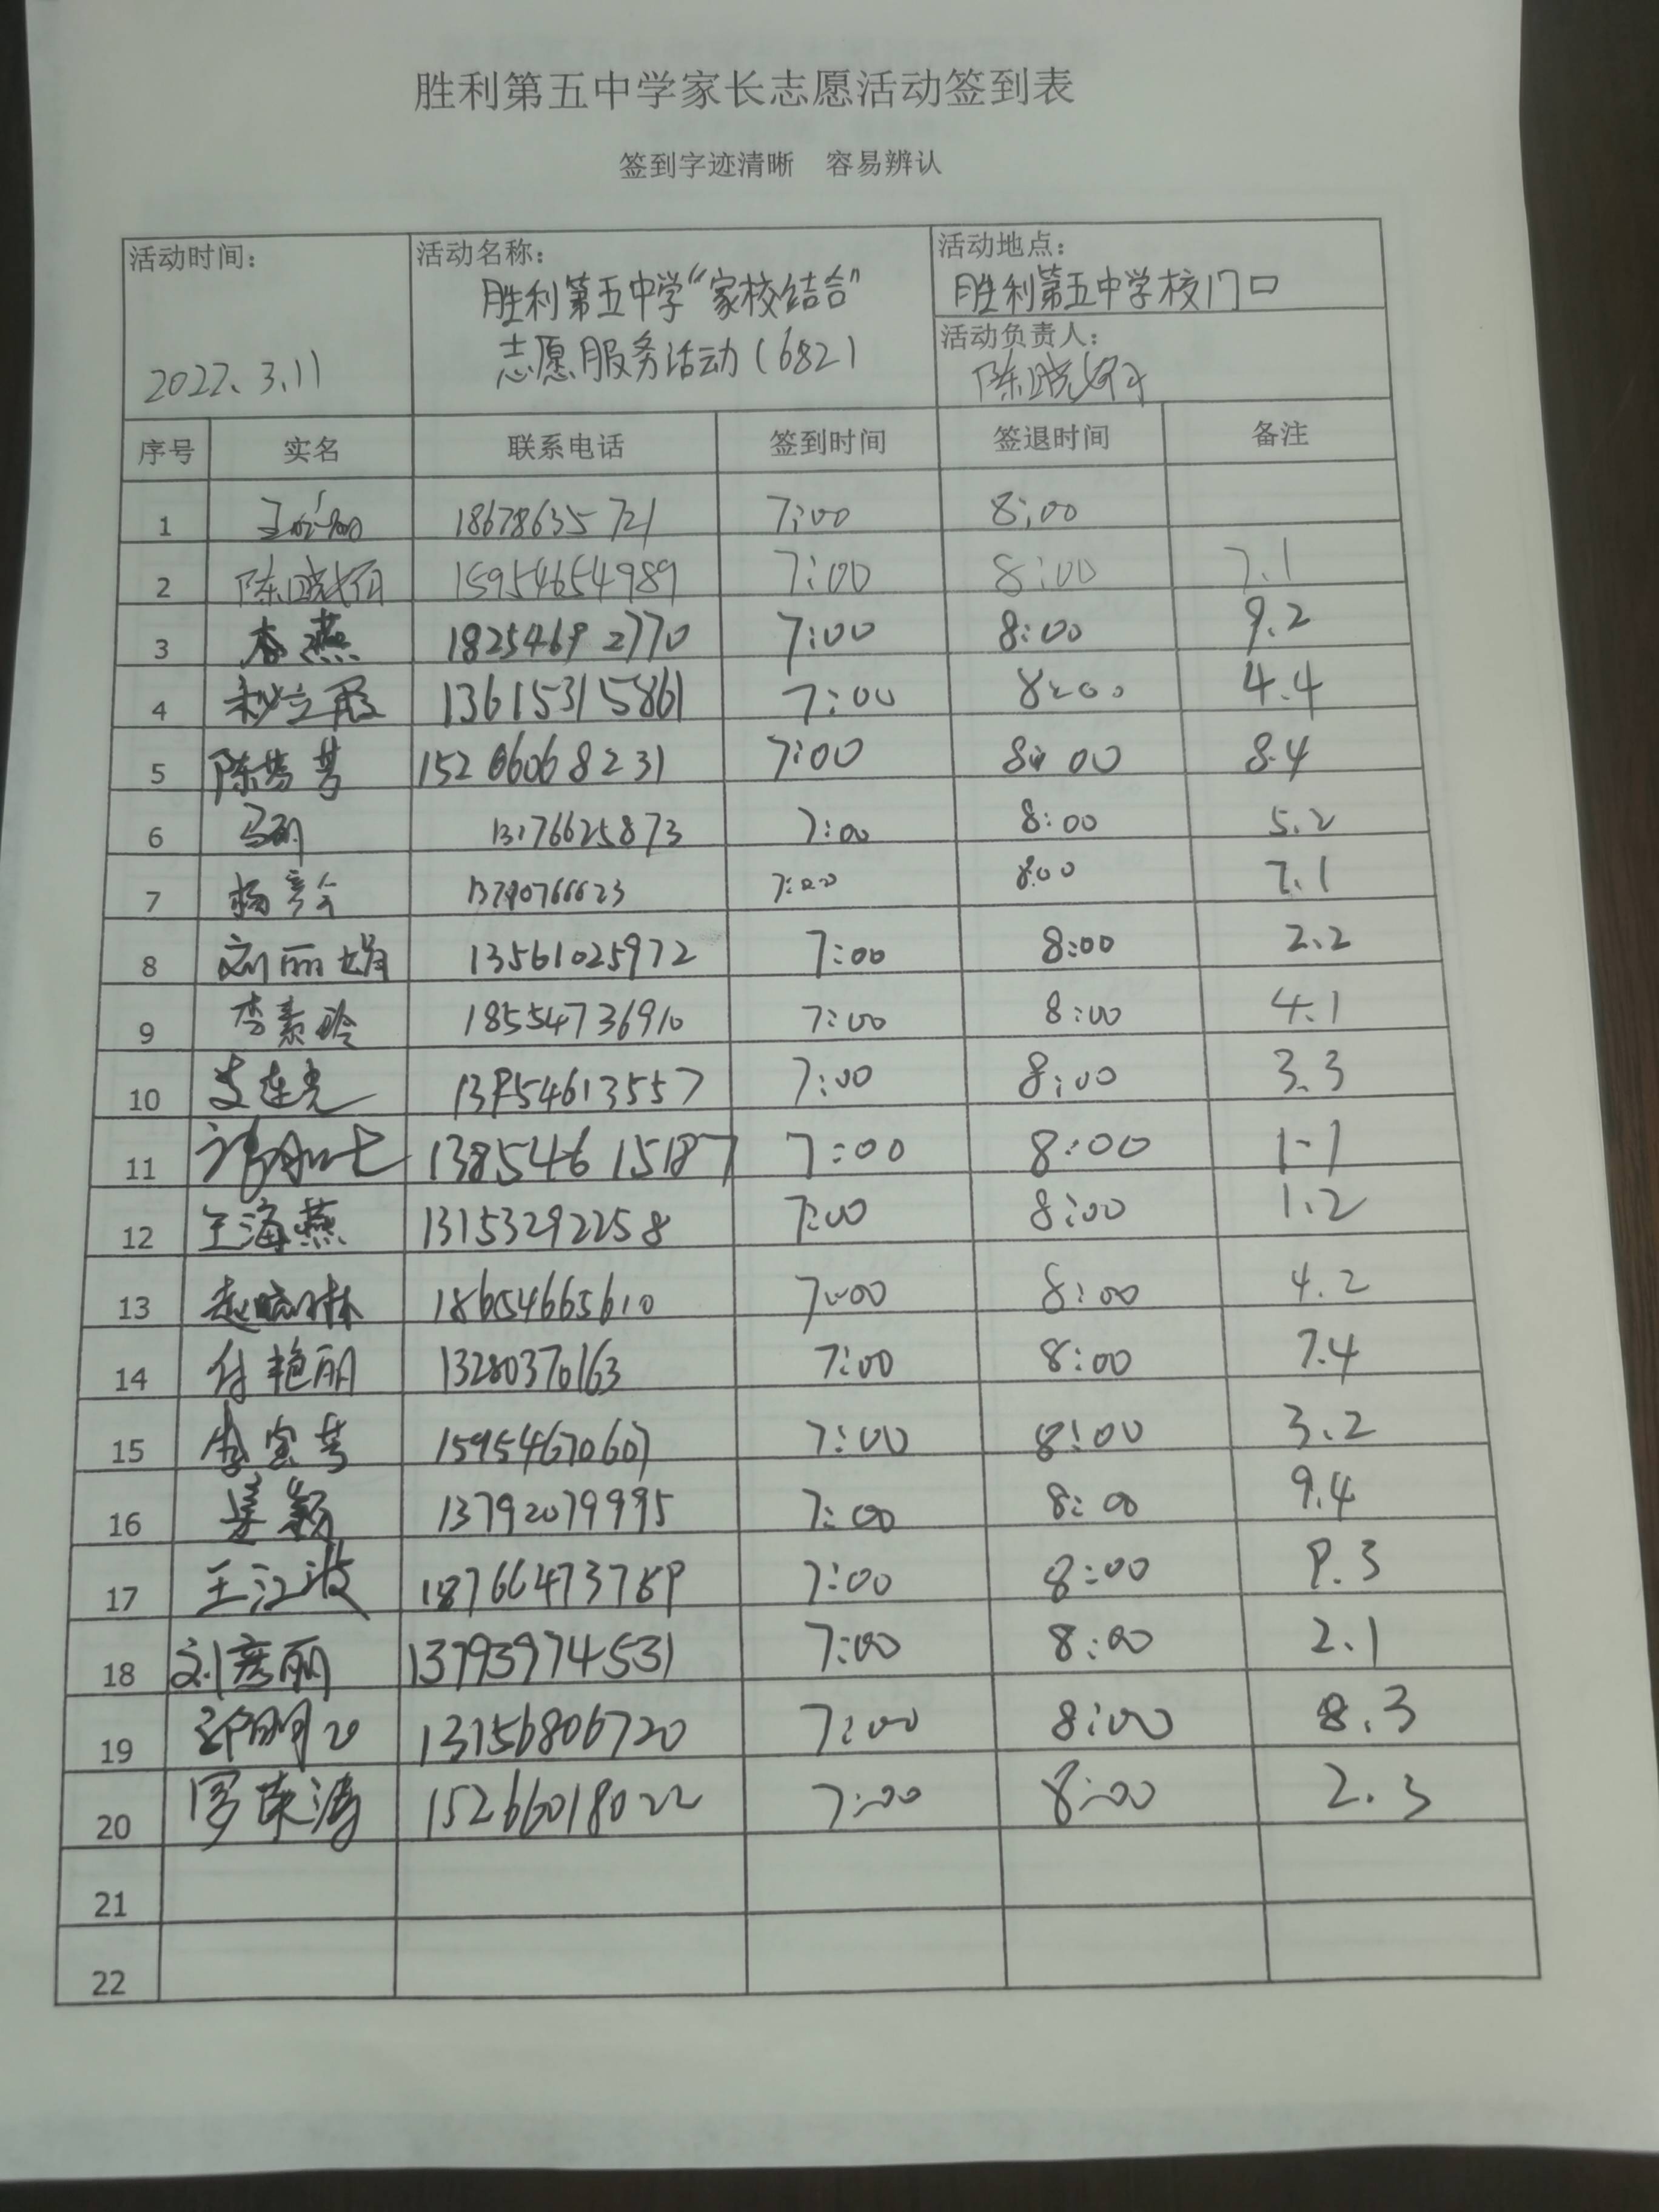 胜利第五中学家长志愿活动签到表
签到字迹清晰 容易辨认
活动时间: 2022.3.11
活动名称: 胜利第五中学“家校结合”
志愿服务活动(682)
活动地点: 胜利第五中学校门口
活动负责人: 陈晓
序号 实名 联系电话 签到时间 签退时间 备注
1 王 18678635721 7:00 8:00
2 陈晓 15954654989 7:00 8:00 7.1
3 燕 18254692770 7:00 8:00 9.2
4 13615315861 7:00 8:00 4.4
5 陈 15266068231 7:00 8:00 8.4
6 马 13176625873 7:00 8:00 5.2
7 杨彦会 7:00 8:00 7.1
8 刘丽娟 13561025972 7:00 8:00 2.2
9 李素玲 18554736910 7:00 8:00 4.1
10 支连光 13954613557 7:00 8:00 3.3
11 13854615187 7:00 8:00 1-1
12 王海燕 13153292258 7:00 8:00 1.2
13 赵晓林 18654665610 7:00 8:00 4.2
14 付艳丽 13280370163 7:00 8:00 7.4
15 李宝 15954670607 7:00 8:00 3.2
16 姜颖 13792079995 7:00 8:00 9.4
17 王江波 18766473789 7:00 8:00 9.3
18 刘彦丽 13793974531 7:00 8:00 2.1
19 13156806720 7:00 8:00 8.3
20 罗荣涛 15266018022 7:00 8:00 2.3
21
22